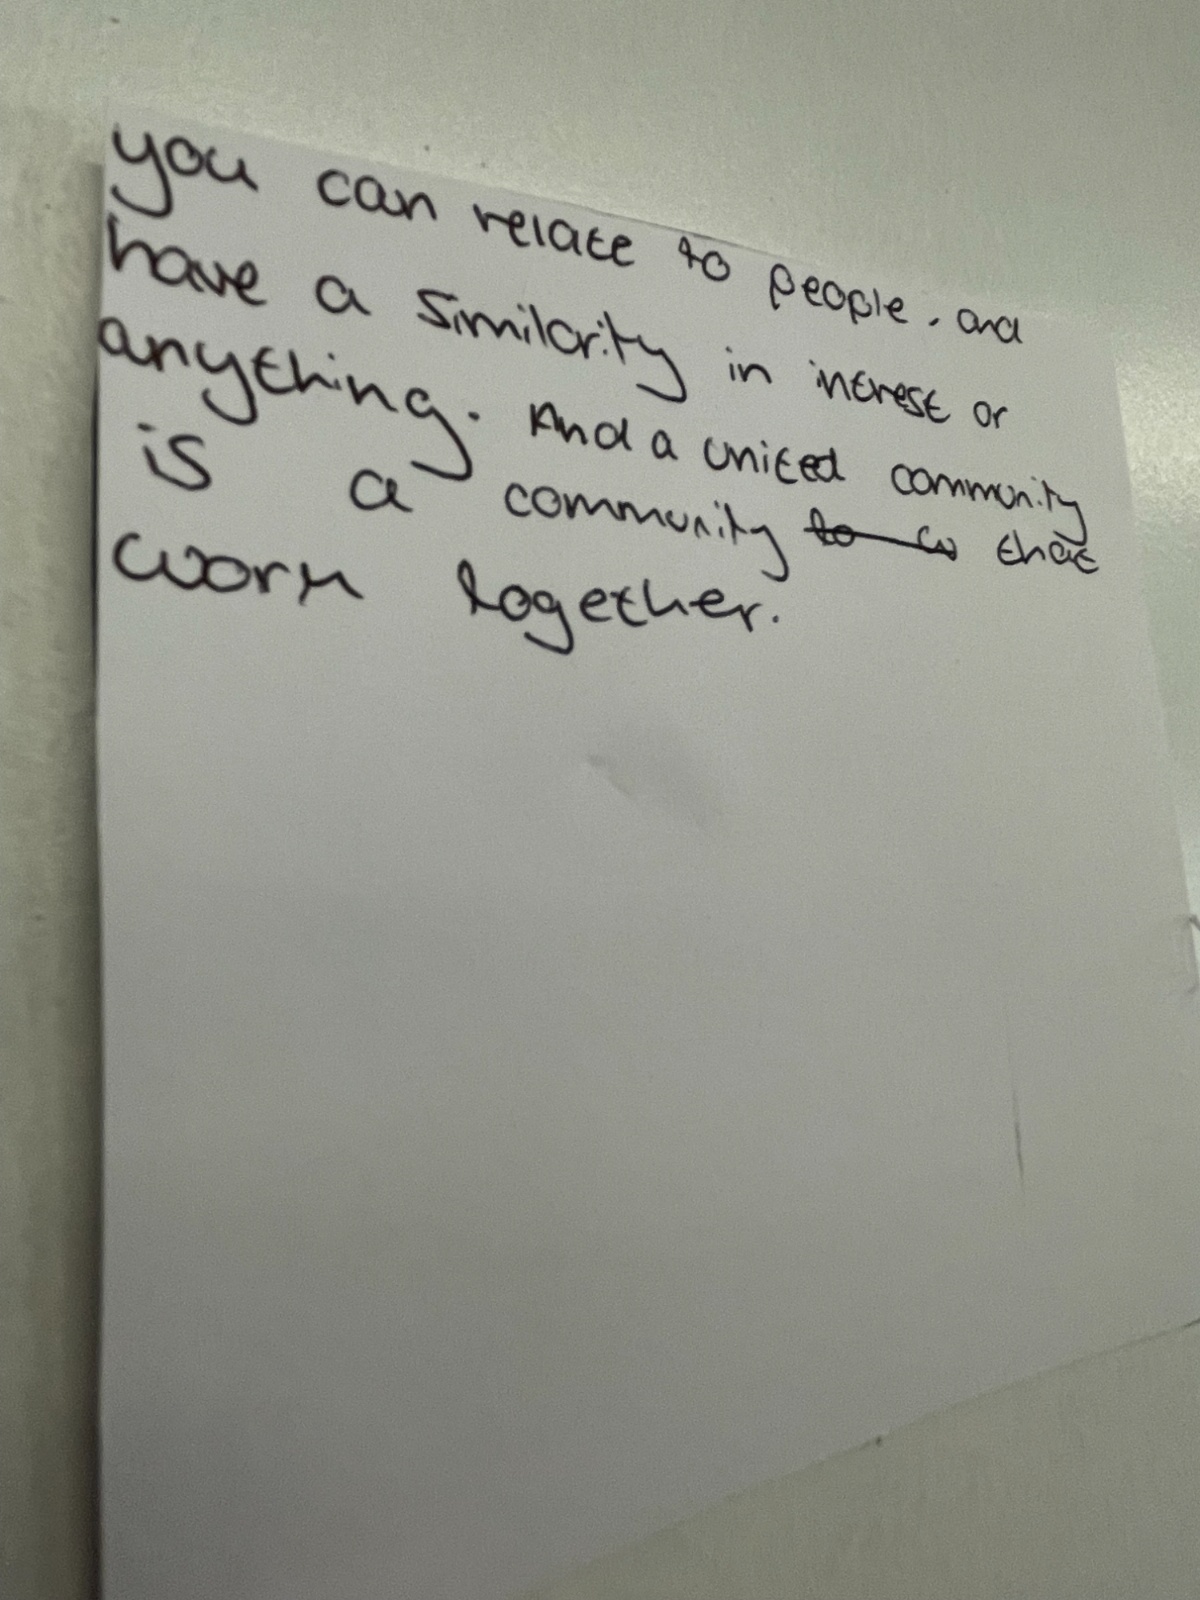 you can relate to people. and
have a similarity in intrest or
anything. And a united community
is a community ~~to w~~ that
work together.